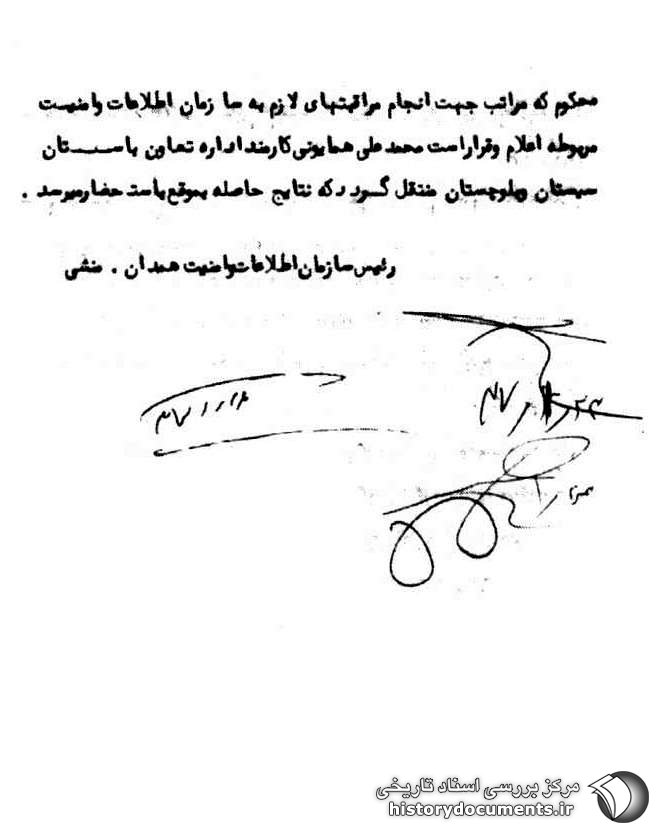 محکوم که مراتب جهت انجام مراقبتهای لازم به سا زمان اطلاعات وامنیت
مربوطه اعلام وقراراست محمدعلی همایونی کارمنداداره تعاون باســـتان
سیستان وبلوچستان منتقل گردد که نتایج حاصله بموقع باستحضارمیرسد .
رئیس سازمان اطلاعات وامنیت همدان . منشی
مرکز بررسی اسناد تاریخی
historydocuments.ir